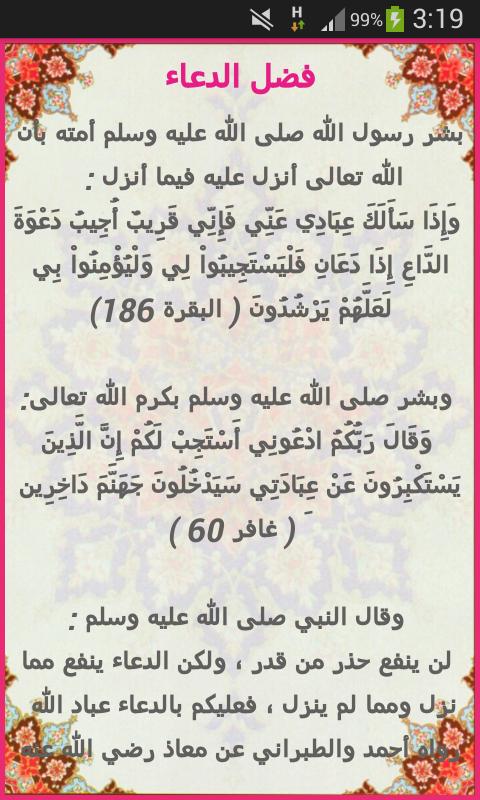 H 99% 3:19
فضل الدعاء
بشر رسول الله صلى الله عليه وسلم أمته بأن
الله تعالى أنزل عليه فيما أنزل :
وَإِذَا سَأَلَكَ عِبَادِي عَنِّي فَإِنِّي قَرِيبٌ أُجِيبُ دَعْوَةَ
الدَّاعِ إِذَا دَعَانِ فَلْيَسْتَجِيبُواْ لِي وَلْيُؤْمِنُواْ بِي
لَعَلَّهُمْ يَرْشُدُونَ ( البقرة 186)
وبشر صلى الله عليه وسلم بكرم الله تعالى:
وَقَالَ رَبُّكُمُ ادْعُونِي أَسْتَجِبْ لَكُمْ إِنَّ الَّذِينَ
يَسْتَكْبِرُونَ عَنْ عِبَادَتِي سَيَدْخُلُونَ جَهَنَّمَ دَاخِرِين
َ ( غافر 60 )
وقال النبي صلى الله عليه وسلم :
لن ينفع حذر من قدر ، ولكن الدعاء ينفع مما
نزل ومما لم ينزل ، فعليكم بالدعاء عباد الله
رواه أحمد والطبراني عن معاذ رضي الله عنه